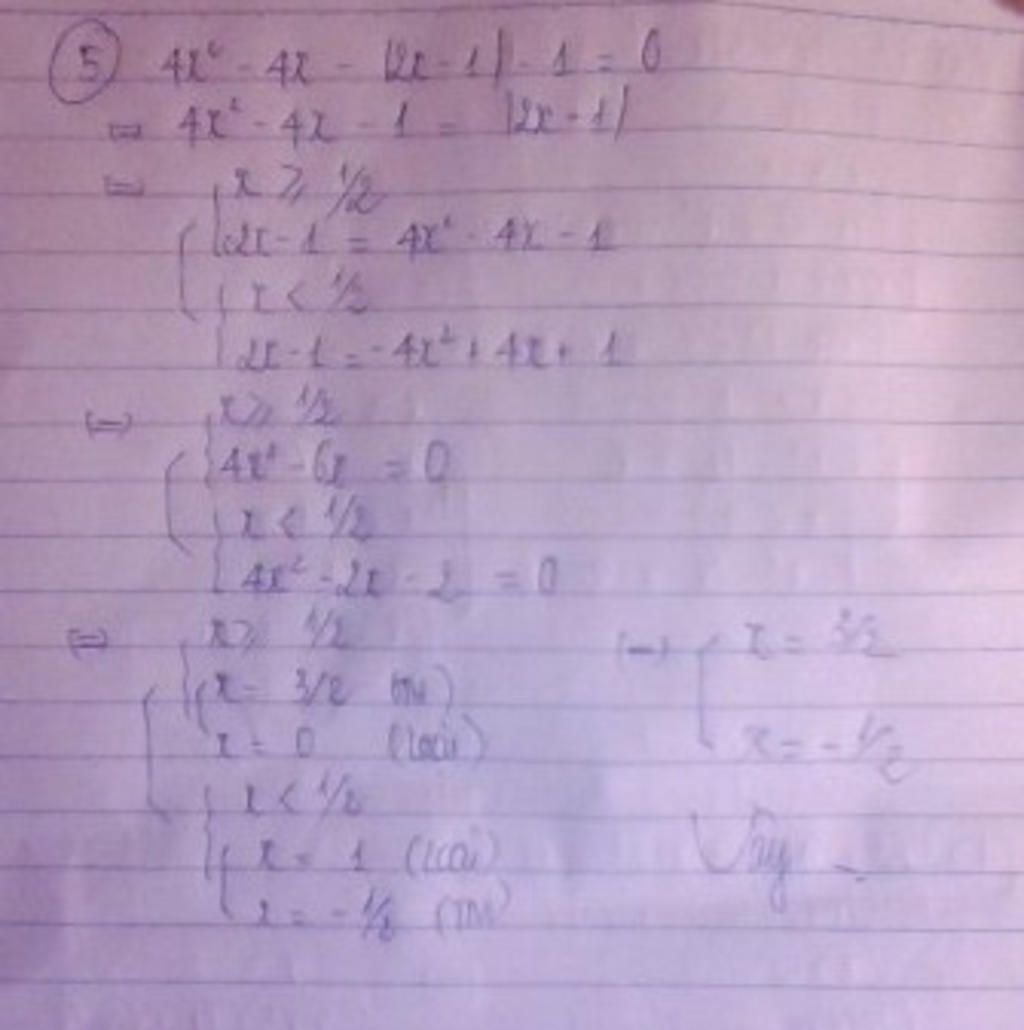 5 4x² - 4x - |2x - 1| - 1 = 0
⇔ 4x² - 4x - 1 = |2x - 1|
⇔ x ≥ 1/2
2x - 1 = 4x² - 4x - 1
x < 1/2
2x - 1 = -4x² + 4x + 1
⇔ x ≥ 1/2
4x² - 6x = 0
x < 1/2
4x² - 2x - 2 = 0
⇔ x ≥ 1/2
x = 3/2 (TM)
x = 0 (loại)
x < 1/2
x = 1 (loại)
x = -1/2 (TM)
⇔ x = 3/2
x = -1/2
Vậy -